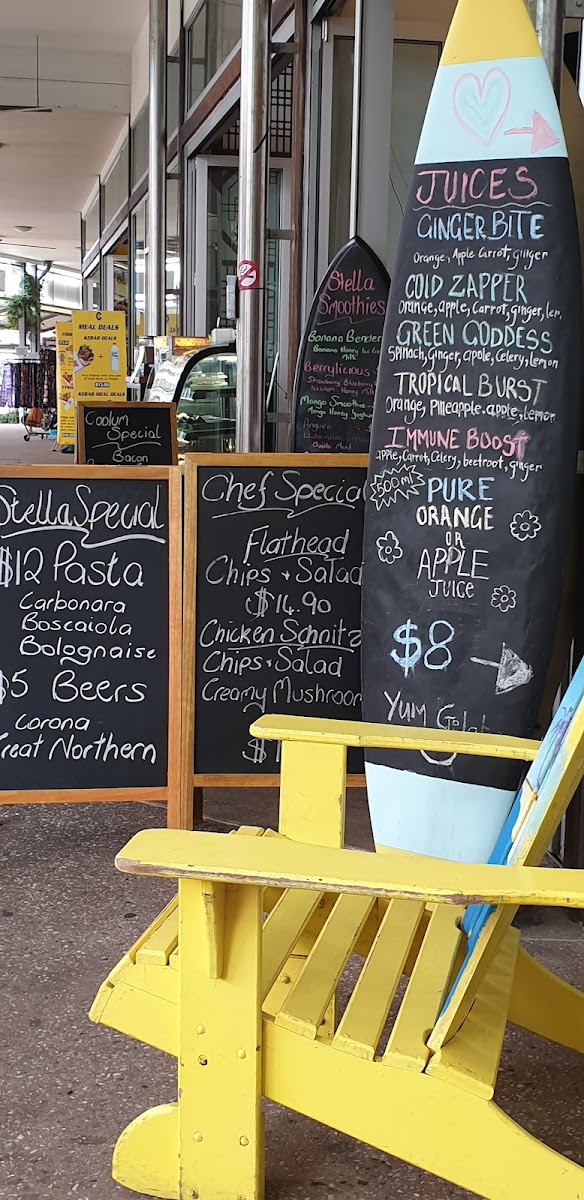 JUICES
GINGER BITE
Orange, Apple Carrot, ginger
COLD ZAPPER
Orange, apple, Carrot, ginger, lem
GREEN GODDESS
Spinach, ginger, apple, Celery, lemon
TROPICAL BURST
Orange, Pineapple, apple, lemon
IMMUNE BOOST
apple, Carrot, Celery, beetroot, ginger
500ml
PURE
ORANGE
OR
APPLE
JUICE
$8
YUM
Stella
Smoothies
Banana Bender
Banana Honey Ice
Milk
Berrylicious
Strawberry Blueberry
Honey Milk
Mango Smoothie
Mango Honey Yogh
MEAL DEALS
KEBAB MEAL DEALS
Coolum
Special
Bacon
Stella Special
$12 Pasta
Carbonara
Boscaiola
Bolognaise
$5 Beers
Corona
Great Northern
Chef Special
Flathead
Chips + Salad
$14.90
Chicken Schnitz
Chips + Salad
Creamy Mushroom
$1